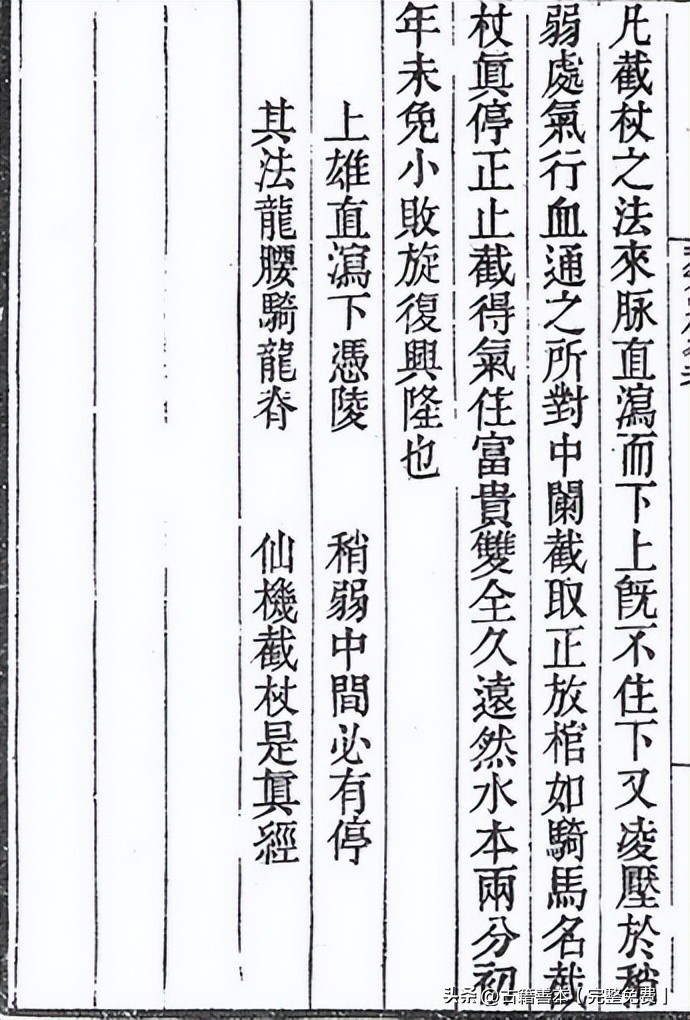 凡截杖之法來脈直瀉而下上旣不住下又凌壓於稍
弱處氣行血通之所對中闌截取正放棺如騎馬名截
杖眞停正止截得氣住富貴雙全久遠然水本兩分初
年未免小敗旋復興隆也
上雄直瀉下憑陵 稍弱中間必有停
其法龍腰騎龍脊 仙機截杖是眞經
头条@古籍善本(完整免费)